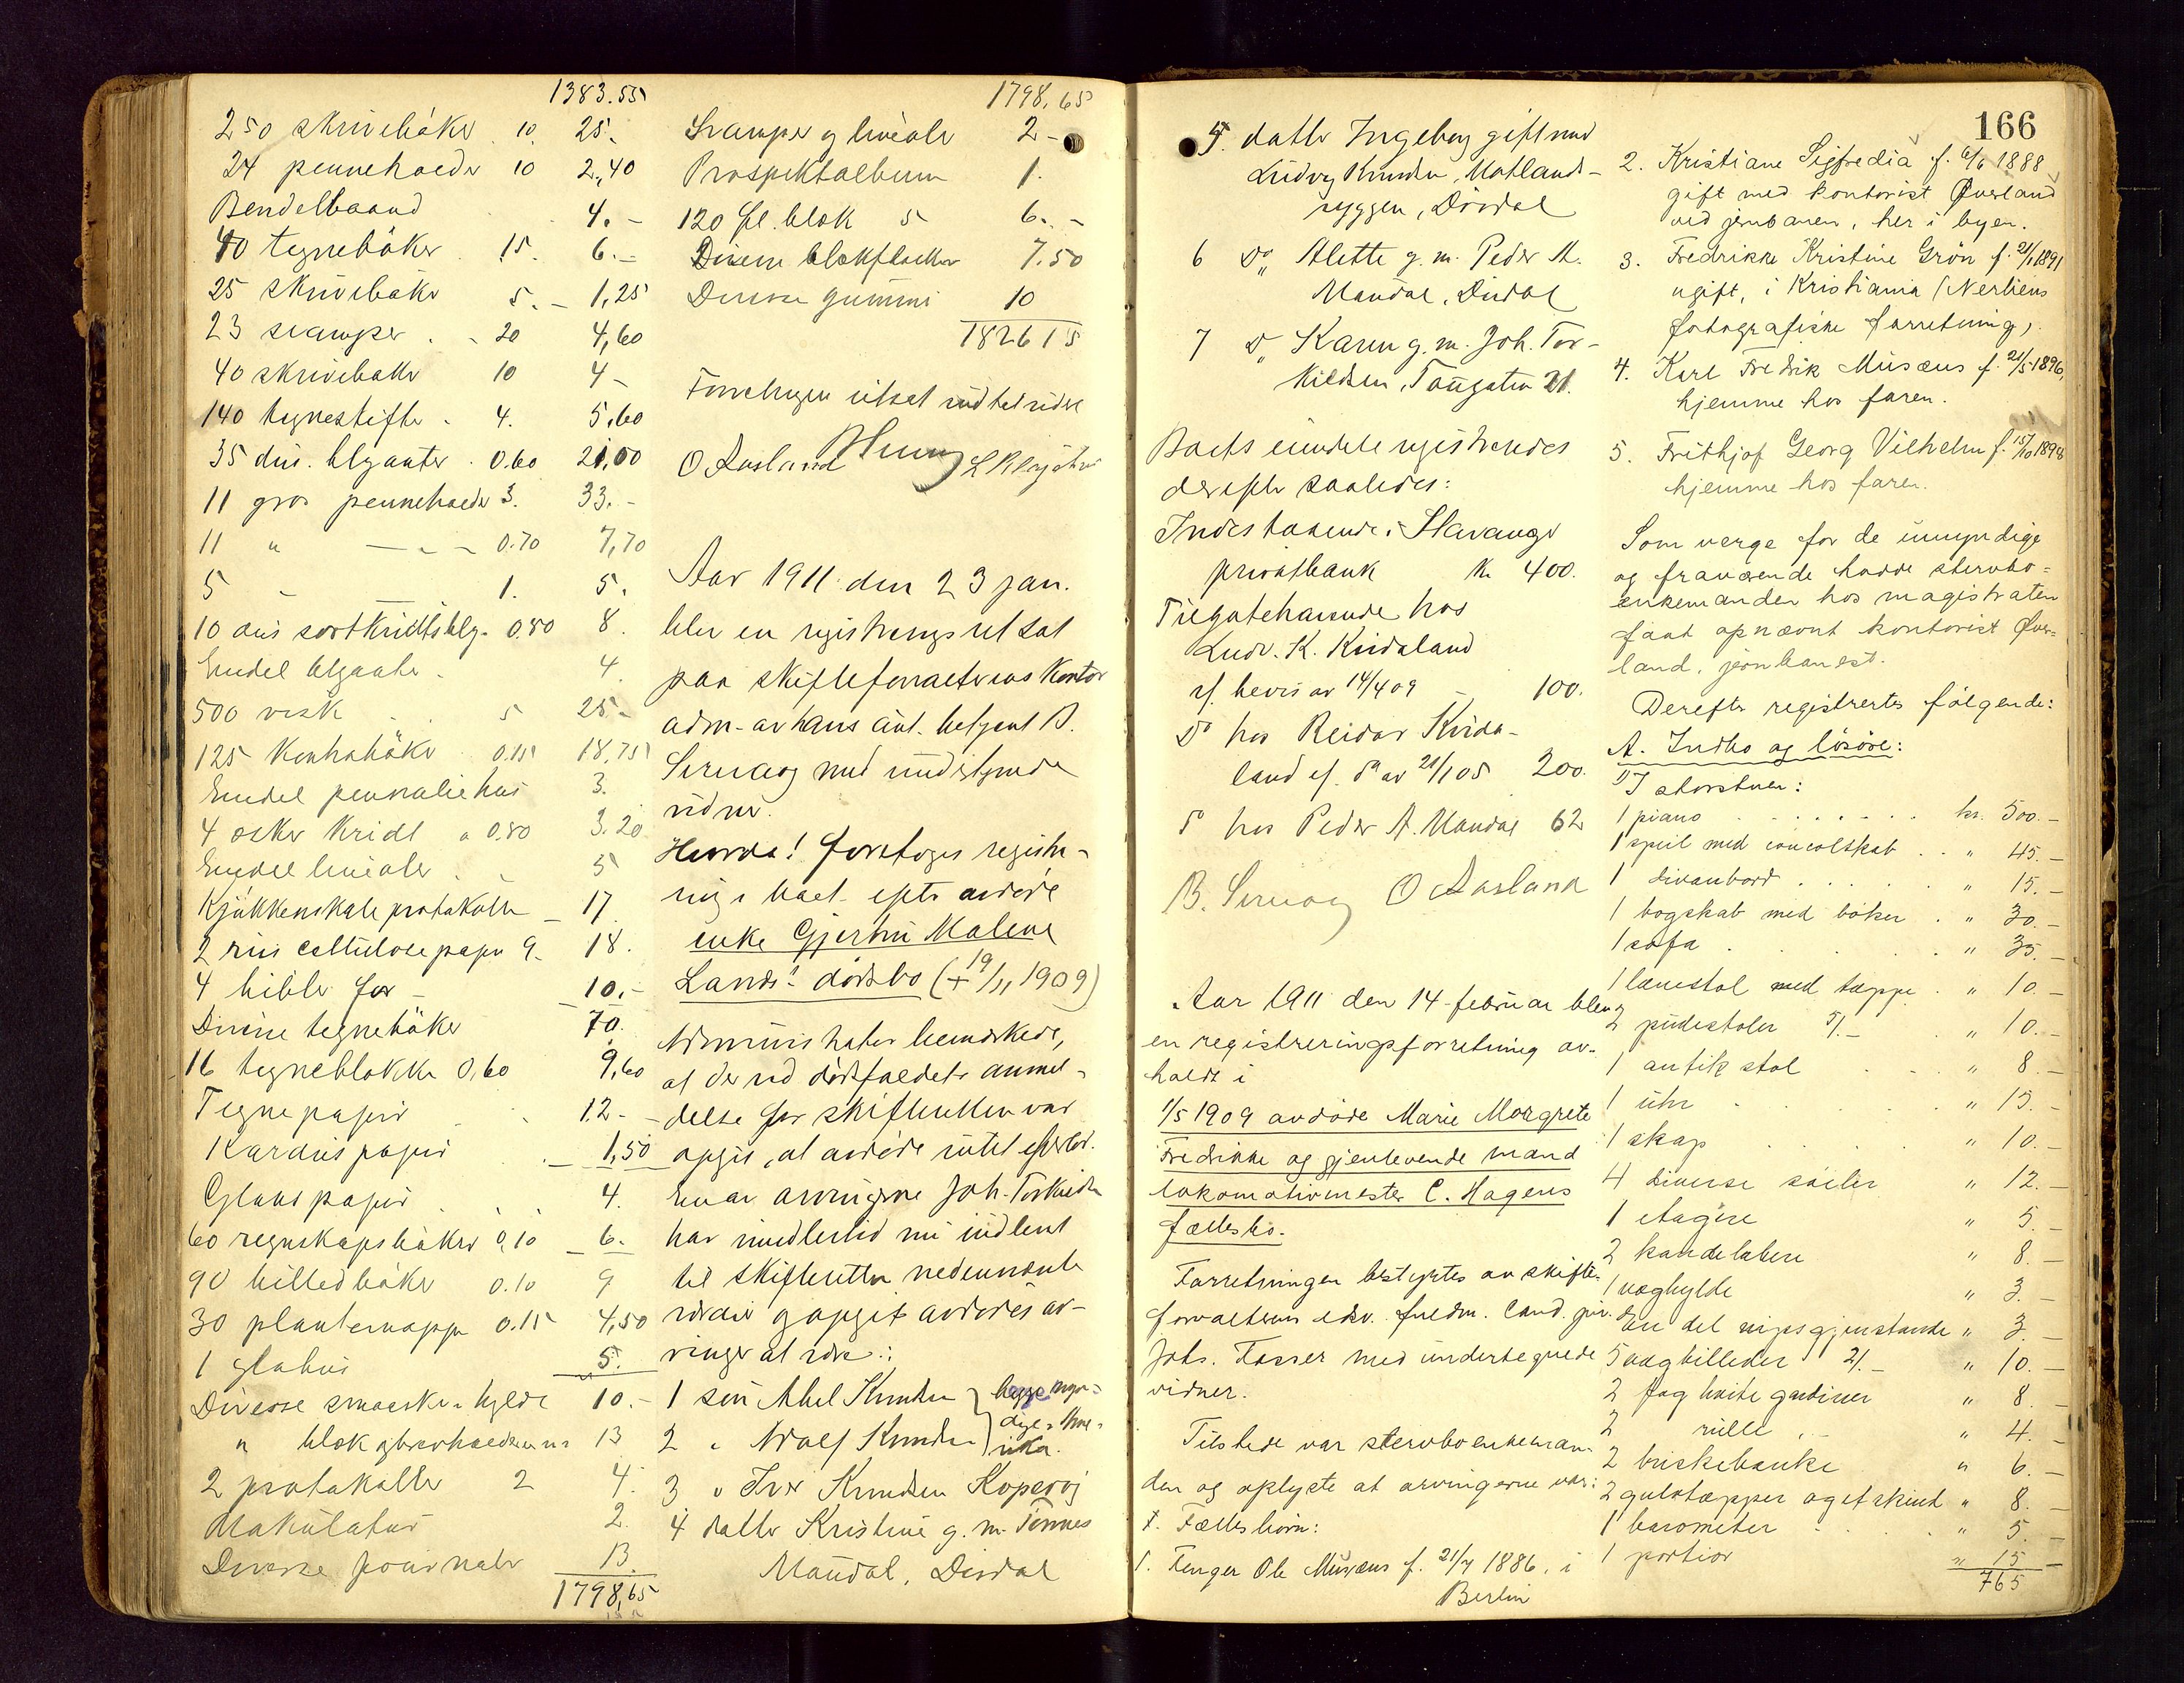 1383.55
250 skrivebøker 10. 25.
24 penneholder 10 2,40
Bendelbaand 4.-
40 tegnebøker 15. 6.-
25 skrivebøker 5.- 1,25
23 svamper . - 20 4,60
40 skrivebøker 10 4-
140 tegnestifter - 4. 5,60
35 dus. blyanter . 0.60 21,00
11 gros penneholder 3. 33.-
11 " — - - 0.70 7,70
5 - — 1. 5.
10 dus sortkridtsbly. 0.80 8.
Endel blyanter . 4.
500 visk . . 5 25-
125 Kontrabøker 0.15 18,75
Endel pennaliehus 3.
4 æsker Kridt a 0.80 3.20
Endel linealer . - 5
Kjøkkenskabs protokoller - 17.
2 ris cellulosepapir 9- 18.
4 bibler for - 10.-
Diverse tegnebøker 70.
16 tegneblokke 0,60 9,60
Tegnepapir . . 12-
Karduspapir . - 1,50
Glanspapir . . 4.
60 regnskapsbøker 0,10 - 6.
90 billedbøker 0.10 9
30 plantemapper 0.15 4,50
1 globus 5.
Diverse smaaesker, hylde 10.-
" blok 13
2 protokoller 2 4.
Makulatur 2.
Diverse journaler 13.
1798,65
1798,65
Svamper og linealer 2-
Prospektalbum 1.
120 fl. blæk 5 6.-
Diverse blækflasker 7.50
Diverse gummi 10
1826 15
Forretningen utsat indtil videre
O Aasland
Aar 1911 den 23 jan.
blev en registreringsret sat
paa skifteforvalterens Kontor
adm. av hans aut. betjent B.
Sirevaag med undertegnede
vidner.
Hvorda! foretoges registre-
ring i boet efter avdøde
enke Gjertru Malene
Lands! dødsbo (+ 19/11 1909)
Administrator bemerkede,
at der ved dødsfaldets anmel-
delse for skifteretten var
opgit, at avdøde intet efterlot.
En av arvingerne Joh. Torkildsen
har imidlertid nu indlevt
til skifteretten nedennævnte
værdier og opgit avdødes ar-
vinger at være:
1 søn Abel Knudsen } begge myn-
2 " Adolf Knudsen } dige, Ame-
rika.
3 " Iver Knudsen Kopervig
4 datter Kristine g. m. Tønnes
Maudal, Dirdal
166
5. datter Ingeborg gift med
Ludvig Knudsen, Motlands-
ryggen, Dirdal
6 Do Alette g. m. Peder A.
Maudal, Dirdal
7 Do Karen g. m. Joh. Tor-
kildsen, Taugaten 21.
Boets eiendele registreredes
derefter saaledes:
Indestaaende i Stavanger
privatbank Kr 400.
Tilgodehavende hos
Ludv. K. Kvidaland
if. bevis av 14/4 09 - 100.
Do hos Reidar Kvida-
land if. do av 21/1 05 200.
Do hos Peder A. Maudal 62
B. Sirevaag O Aasland
Aar 1911 den 14 februar blev
en registreringsforretning av-
holdt i
1/5 1909 avdøde Marie Margrete
Fredrikke og gjenlevende mand
lokomotivmester C. Hagens
fællesbo.
Forretningen bestyrtes av skifte-
forvalterens edsv. fuldm. cand. jur.
Johs. Fosser med undertegnede
vidner.
Tilstede var stervboenkeman-
den og oplyste at arvingerne var:
I. Fællesbørn:
1. Fenger Ole Musæus f. 21/7 1886, i
Berlin
2. Kristiane Sigfredia f. 6/6 1888
gift med kontorist Øverland
ved jernbanen, her i byen.
3. Fredrikke Kristine Grøn f. 21/1 1891
ugift, i Kristiania (Nerliens
fotografiske forretning).
4. Karl Fredrik Musæus f. 21/5 1896,
hjemme hos faren.
5. Frithjof Georg Vilhelm f. 15/10 1898
hjemme hos faren.
Som verge for de umyndige
og fraværende hadde stervbo-
enkemanden hos magistraten
faat opnævnt kontorist Øver-
land, jernbanest.
Derefter registrertes følgende:
A. Indbo og løsøre:
1) I storstuen:
1 piano . . . . . . . kr. 500.-
1 speil med consolskab . . " 45.-
1 divanbord . . . . . " 15.-
1 bogskab med bøker . " 30.-
1 sofa . . . . " 35.-
1 lænestol med tæppe . " 10.-
2 pudestoler 5/- . " 10.-
1 antik stol . . " 8.-
1 uhr . . . " 15.-
1 skap . . . " 10.-
4 diverse søiler " 12.-
1 etagere " 5.-
2 kandelabere " 8.-
1 væghylde " 3.-
En del nipsgjenstande " 3.-
5 vægbilleder 2/- " 10.-
2 fag hvite gardiner " 8.-
2 rulle ,- " 4.-
2 buskebænke " 6.-
2 gulvtæpper og et skind " 8.-
1 barometer . . . " 5.-
1 portier " 15-
765